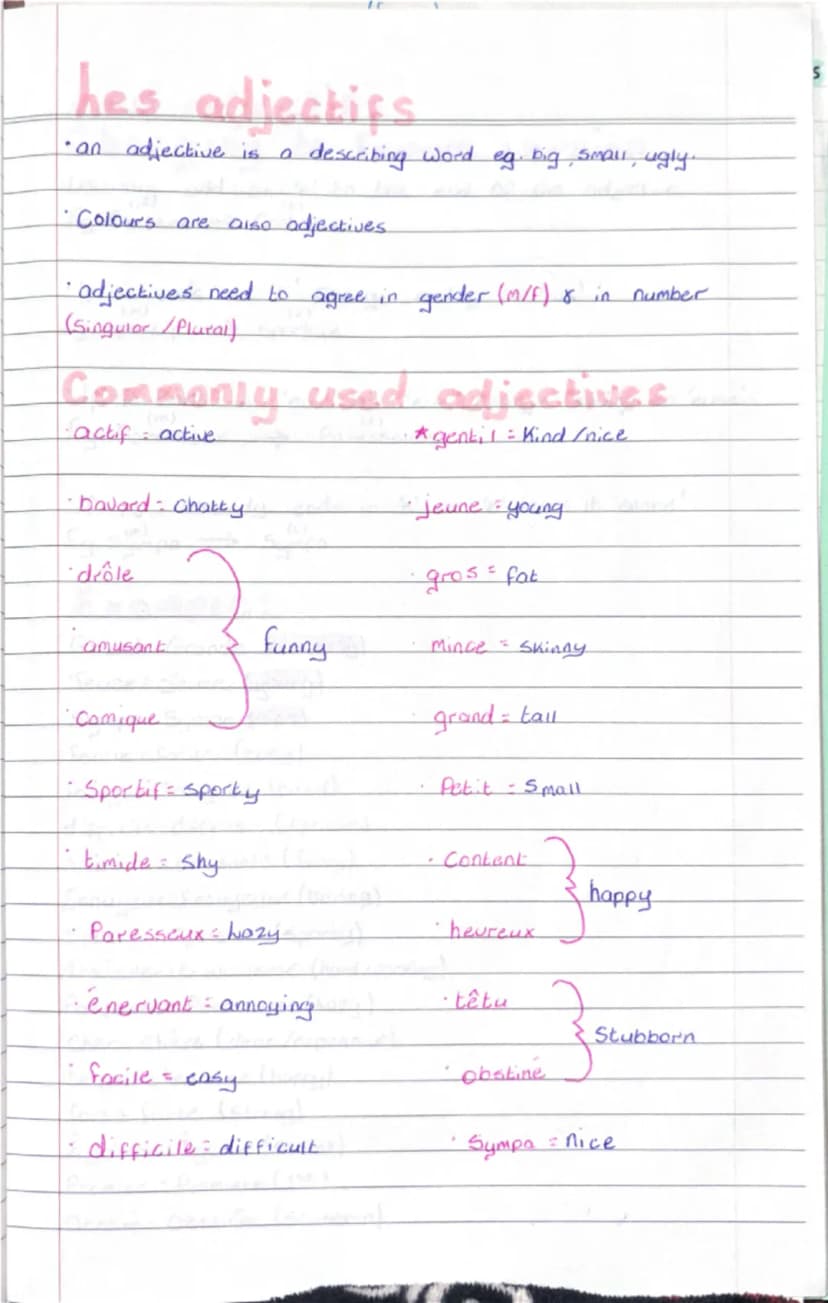 Les adjectifs
· an adjective is a describing word eg. big, small, ugly.
· Colours are also adjectives
· adjectives need to agree in gender (m/f) & in number
(Singular / Plural)
Commonly used adjectives
· actif = active
* gentil = Kind/nice
· bavard = Chatty
· jeune = young
· drôle
· amusant } funny
· comique
· gros = fat
· Mince = skinny
· grand = tall
· Sportif = sporty
· Petit = Small
· timide = Shy
· Content
· heureux } happy
· Paresseux = Lazy
· énervant = annoying
· têtu
· obstiné } Stubborn
· facile = easy
· difficile = difficult
· Sympa = nice